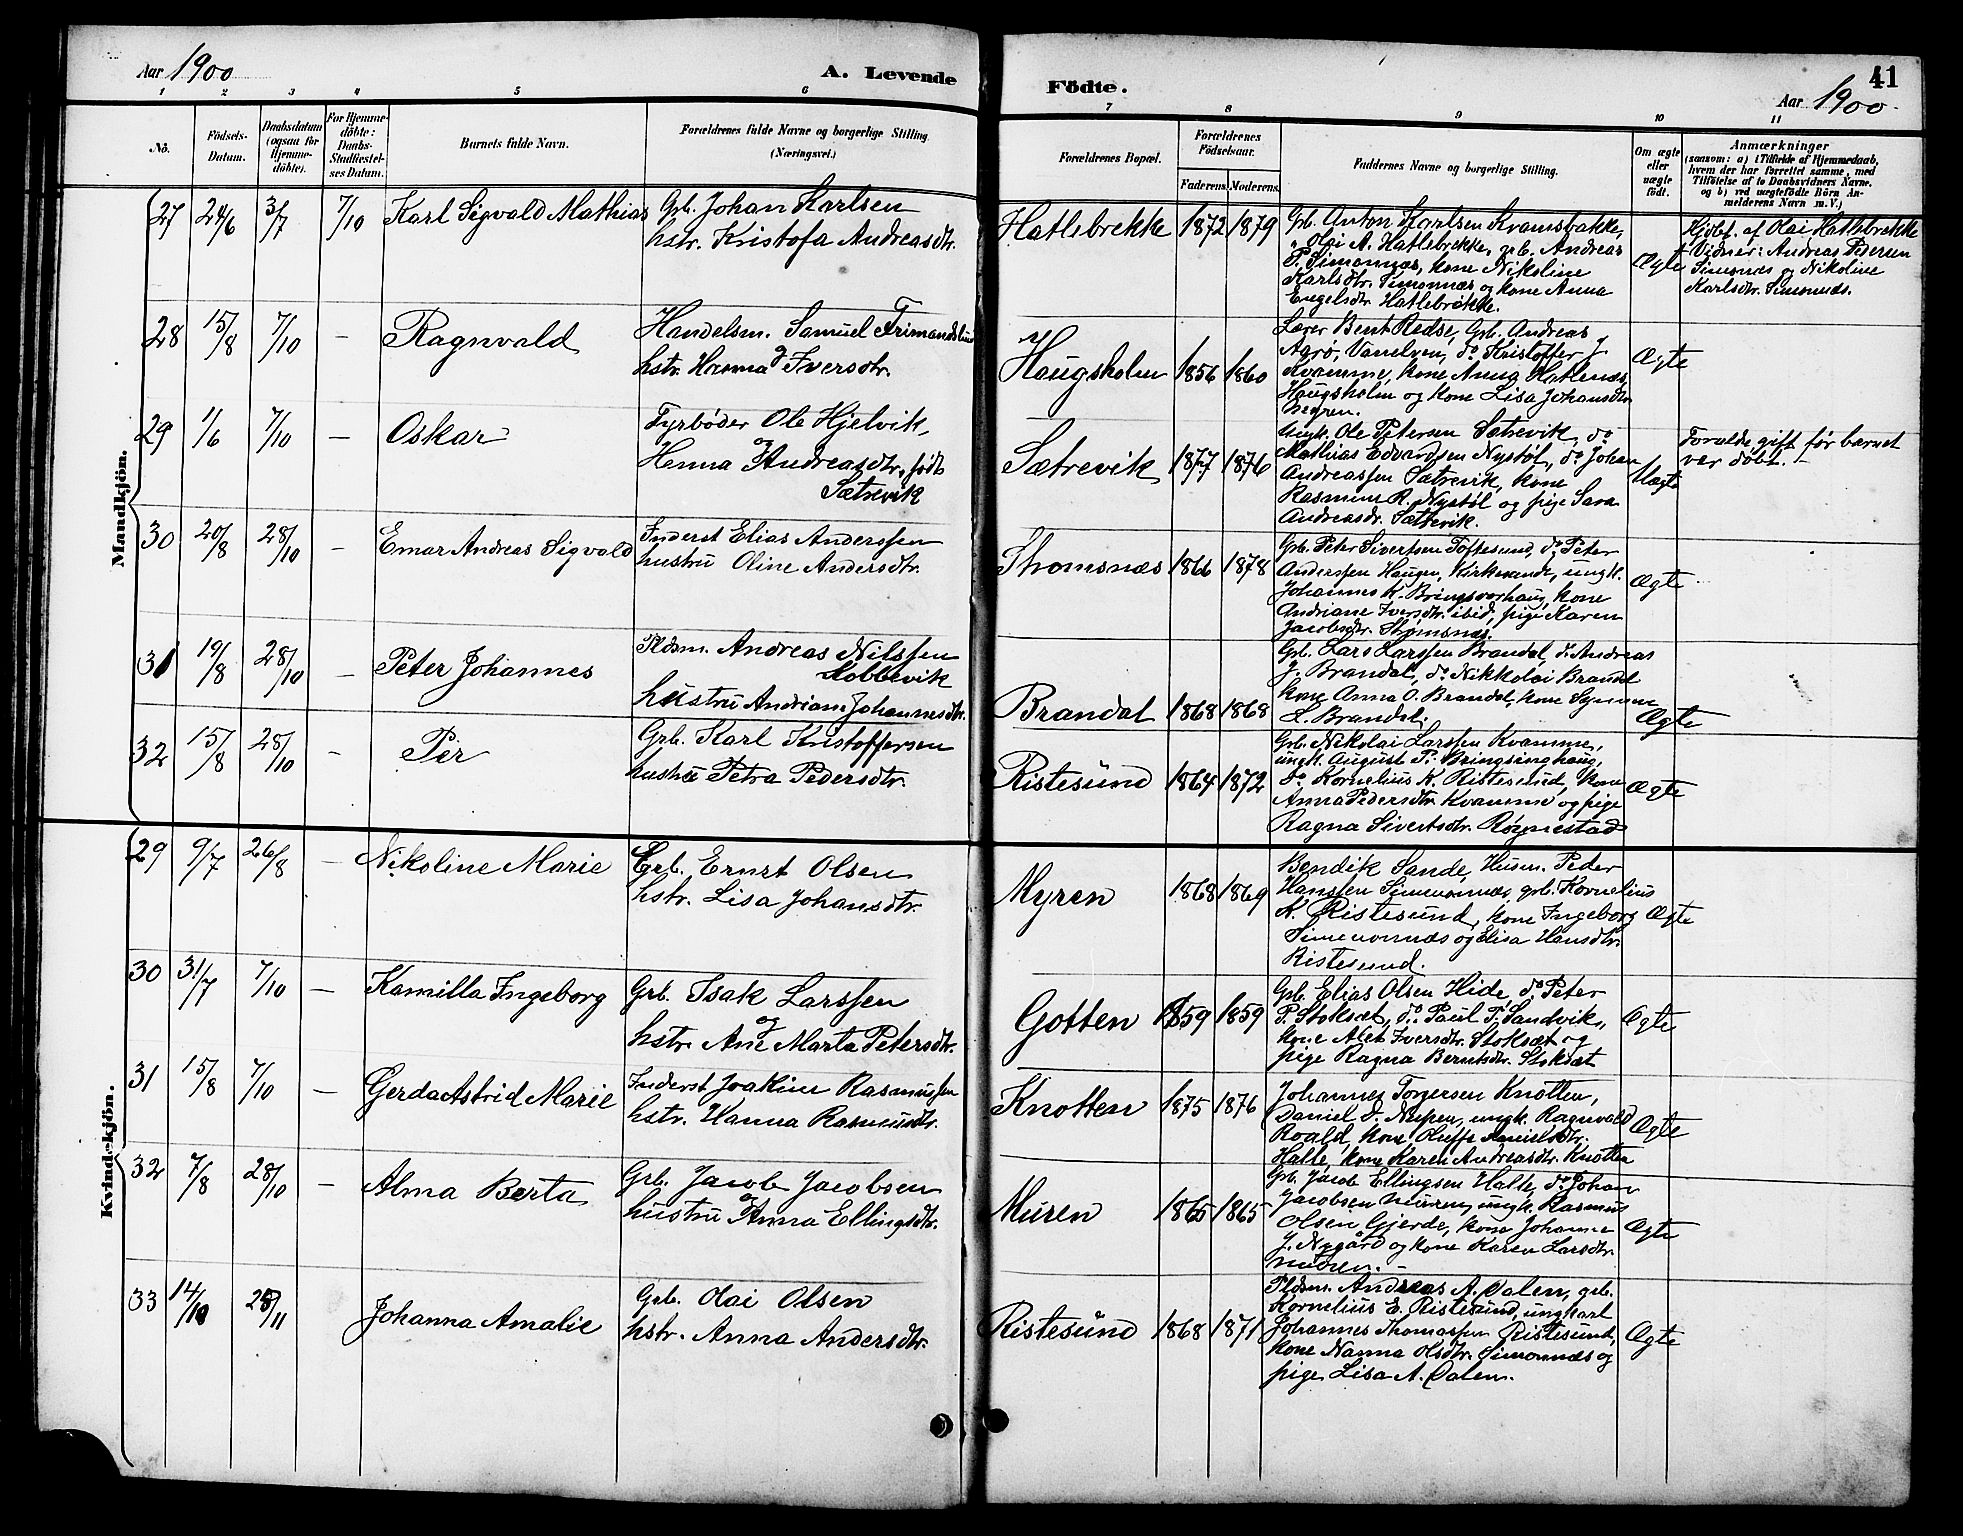 Aar 1900
A. Levende
1 2 3 4 5 6
Nô.
Födsels-
Datum.
Daabsdatum
(ogsaa for
Hjemme-
döbte).
For Hjemme-
döbte:
Daabs-
Stadfæstel-
ses Datum.
Barnets fulde Navn.
Forældrenes fulde Navne og borgerlige Stilling.
(Næringsvei.)
Mandkjön.
27 24/6 3/7 7/10 Karl Sigvald Mathias
Grb. Johan Karlsen
hstr. Kristofa Andreasdtr.
28 15/8 7/10 – Ragnvald
Handelsm. Samuel Frimandslund
og
hstr. Hanna Iversdtr.
29 1/6 7/10 – Oskar
Fyrbøder Ole Hjelvik,
og
Henna Andreasdtr. født
Sætrevik
30 20/8 28/10 – Emar Andreas Sigvald
Inderst Elias Anderssen
hustru Oline Andersdtr.
31 19/8 28/10 – Peter Johannes
Pldsm. Andreas Nilssen
Kobbevik
hustru Andriane Johannesdtr.
32 15/8 28/10 – Per
Grb. Karl Kristoffersen
hustru Petra Pedersdtr.
Kvindekjön.
29 9/7 26/8 – Nikoline Marie
Grb. Ernst Olsen
hstr. Lisa Johansdtr.
30 31/7 7/10 – Kamilla Ingeborg
Grb. Isak Larssen
og
hstr. Ane Marta Petersdtr.
31 15/8 7/10 – Gerda Astrid Marie
Inderst Joakim Rasmussen
hstr. Hanna Rasmusdtr.
32 7/8 28/10 – Alma Berta
Grb. Jacob Jacobsen
og
hustru Anna Ellingsdtr.
33 14/10 25/11 Johanna Amalie
Grb. Olai Olsen
hstr. Anna Andersdtr.
Födte.
41
Aar 1900.
7 8 9 10 11
Forældrenes Bopæl.
Forældrenes
Födselsaar.
Faderens. Moderens.
Faddernes Navne og borgerlige Stilling.
Om ægte
eller
uægte
født.
Anmærkninger
(saasom: a) i Tilfælde af Hjemmedaab,
hvem der har forrettet samme, med
Tilföielse af to Daabsvidners Navne.
og b) ved uægtefödte Börn An-
melderens Navn m. V.)
Hatlebrekke 1872 1879
Grb. Anton Karlsen Kvamsbakke,
" Olai A. Hatlebrekke, grb. Andreas
P. Simonnæs, kone Nikoline
Karlsdtr. Simonnæs og kone Anna
Engelsdtr. Hatlebrekke.
Ægte
Hjdbt. af Olai Hatlebrekke
Vidner: Andreas Pedersen
Simonæs og Nikoline
Karlsdtr. Simonnæs.
Haugsholm 1856 1860
Lærer Bent Redse, Grb. Andreas
Aarø, Vanelven, do Kristoffer J.
Kvamme, kone Anna Hatlenæs,
Haugsholm og kone Lisa Johansdtr.
Myren.
Ægte
Sætrevik 1877 1876
Ungk. Ole Petersen Sætrevik, do
Mathias Edvardsen Nystøl, do Johan
Andreassen Sætrevik, kone
Rasmine R. Nystøl og pige Sara
Andreasdr. Sætrevik.
Uægte
Foræld. gift før barnet
var døbt. –
Strømsnæs 1866 1878
Grb. Peter Sivertsen Toftesund, do Peter
Anderssen Haugen, Kirkevande, ungk.
Johannes K. Bringsvorhaug, kone
Andriane Iversdtr. ibid, pige Karen
Jacobsdtr. Strømsnæs.
Ægte
Brandal 1868 1868
Grb. Lars Larssen Brandal, do Andreas
J. Brandal, do Nikkolai Brandal
kone Anna O. Brandal, kone
L. Brandal.
Ægte
Ristesund 1864 1872
Grb. Nikolai Larssen Kvamme,
ungk. August P. Bringsinghaug,
do Kornelius K. Ristesund, kone
Anna Pedersdtr. Kvamme og pige
Ragna Sivertsdtr. Røinestad
Ægte
Myren 1868 1869
Bendik Sande, Husm. Peder
Hanssen Simeonnæs, grb. Kornelius
K. Ristesund, kone Ingeborg
Simeonnæs og Elisa Hansdtr.
Ristesund.
Ægte
Gotten 1859 1859
Grb. Elias Olsen Hide, do Peter
P. Stoksæt, do Paul P. Sandvik,
kone Alet Iversdtr. Stoksæt og
pige Ragna Berntsdtr. Stoksæt
Ægte
Knotten 1875 1876
Johannes Torgersen Knotten,
Daniel J. Nupen, ungk. Ragnvald
Roald, kone Oluffe Danielsdtr.
Halle, kone Karen Andreasdtr. Knotten
Ægte
Muren 1865 1865
Grb. Jacob Ellingsen Halle, do Johan
Jacobsen Muren, ungk. Rasmus
Olsen Gjerde, kone Johanne
J. Nygård og kone Karen Larsdtr.
Muren. –
Ægte
Ristesund 1868 1871
Pldsm. Andreas A. Dalen, grb.
Kornelius E. Ristesund, ungkarl
Johannes Thomassen Ristesund,
kone Nanna Olsdtr. Simonnæs og
pige Lisa A. Dalen.
Ægte